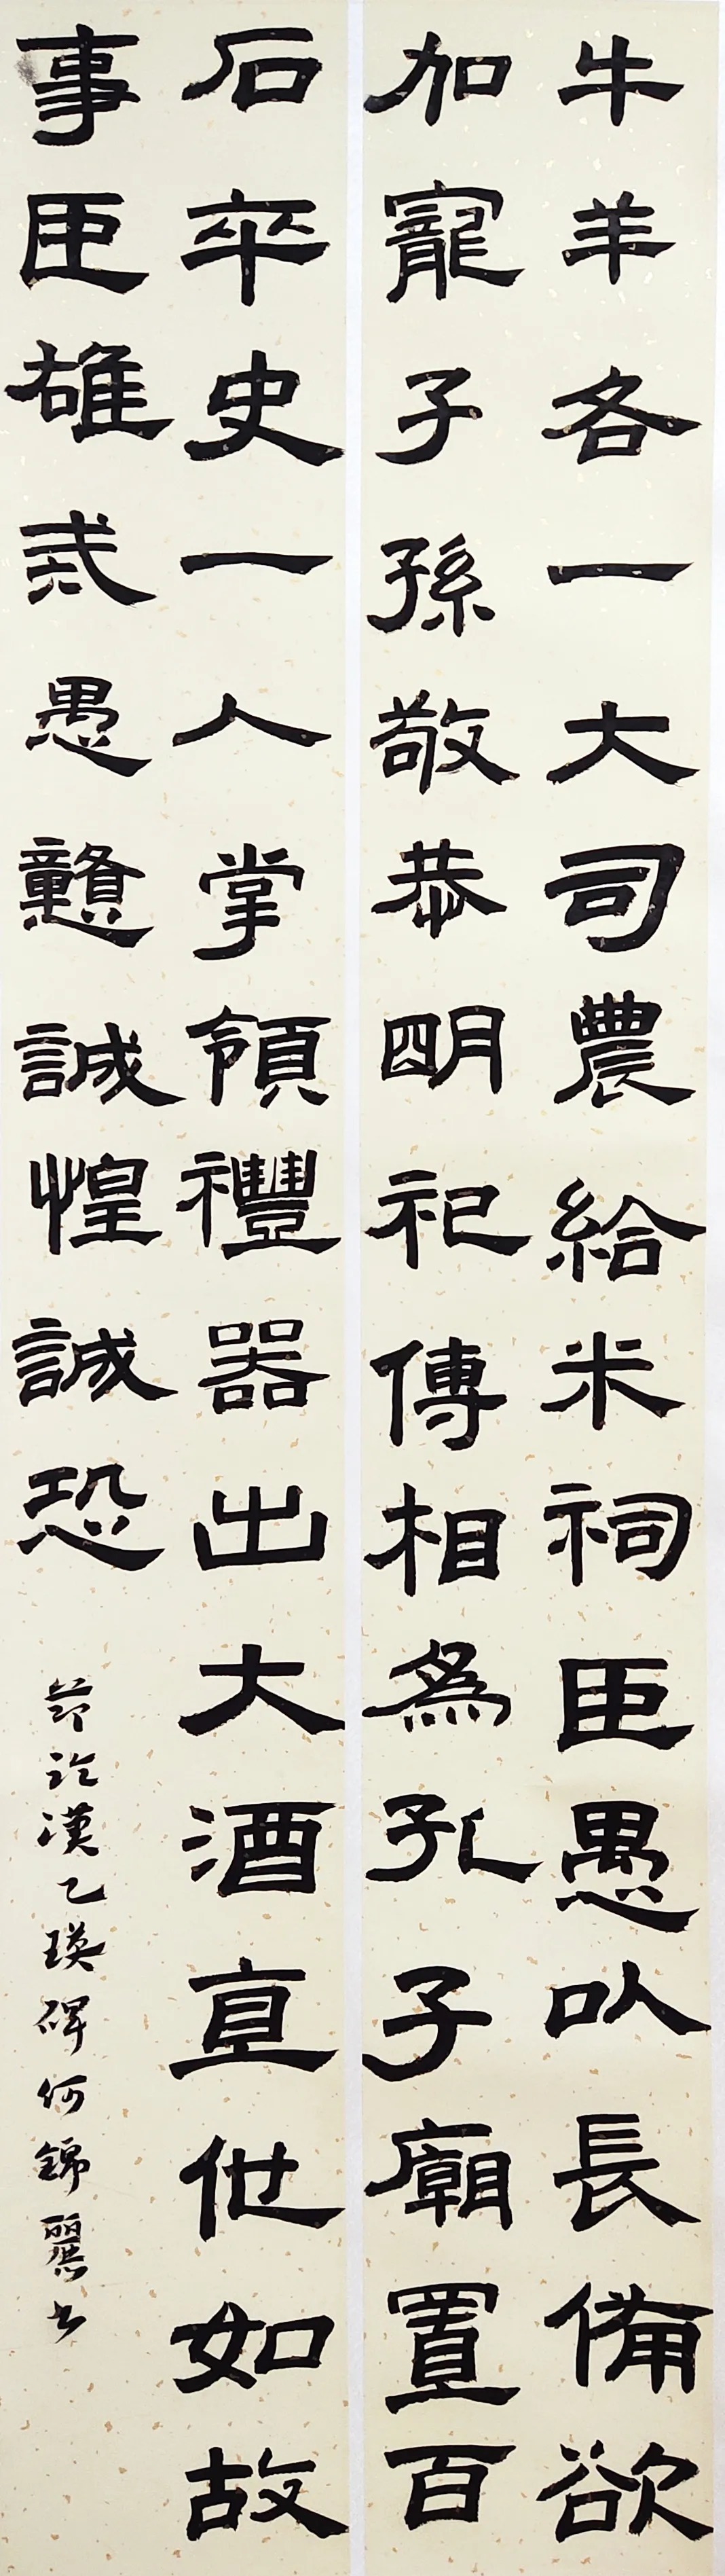 牛羊各一大司農給米祠臣愚以長備欲
加寵子孫敬恭明祀傳相爲孔子廟置百
石卒史一人掌領禮器出大酒直他如故
事臣雄戒愚戇誠惶誠恐
節臨漢乙瑛碑何錦麗书